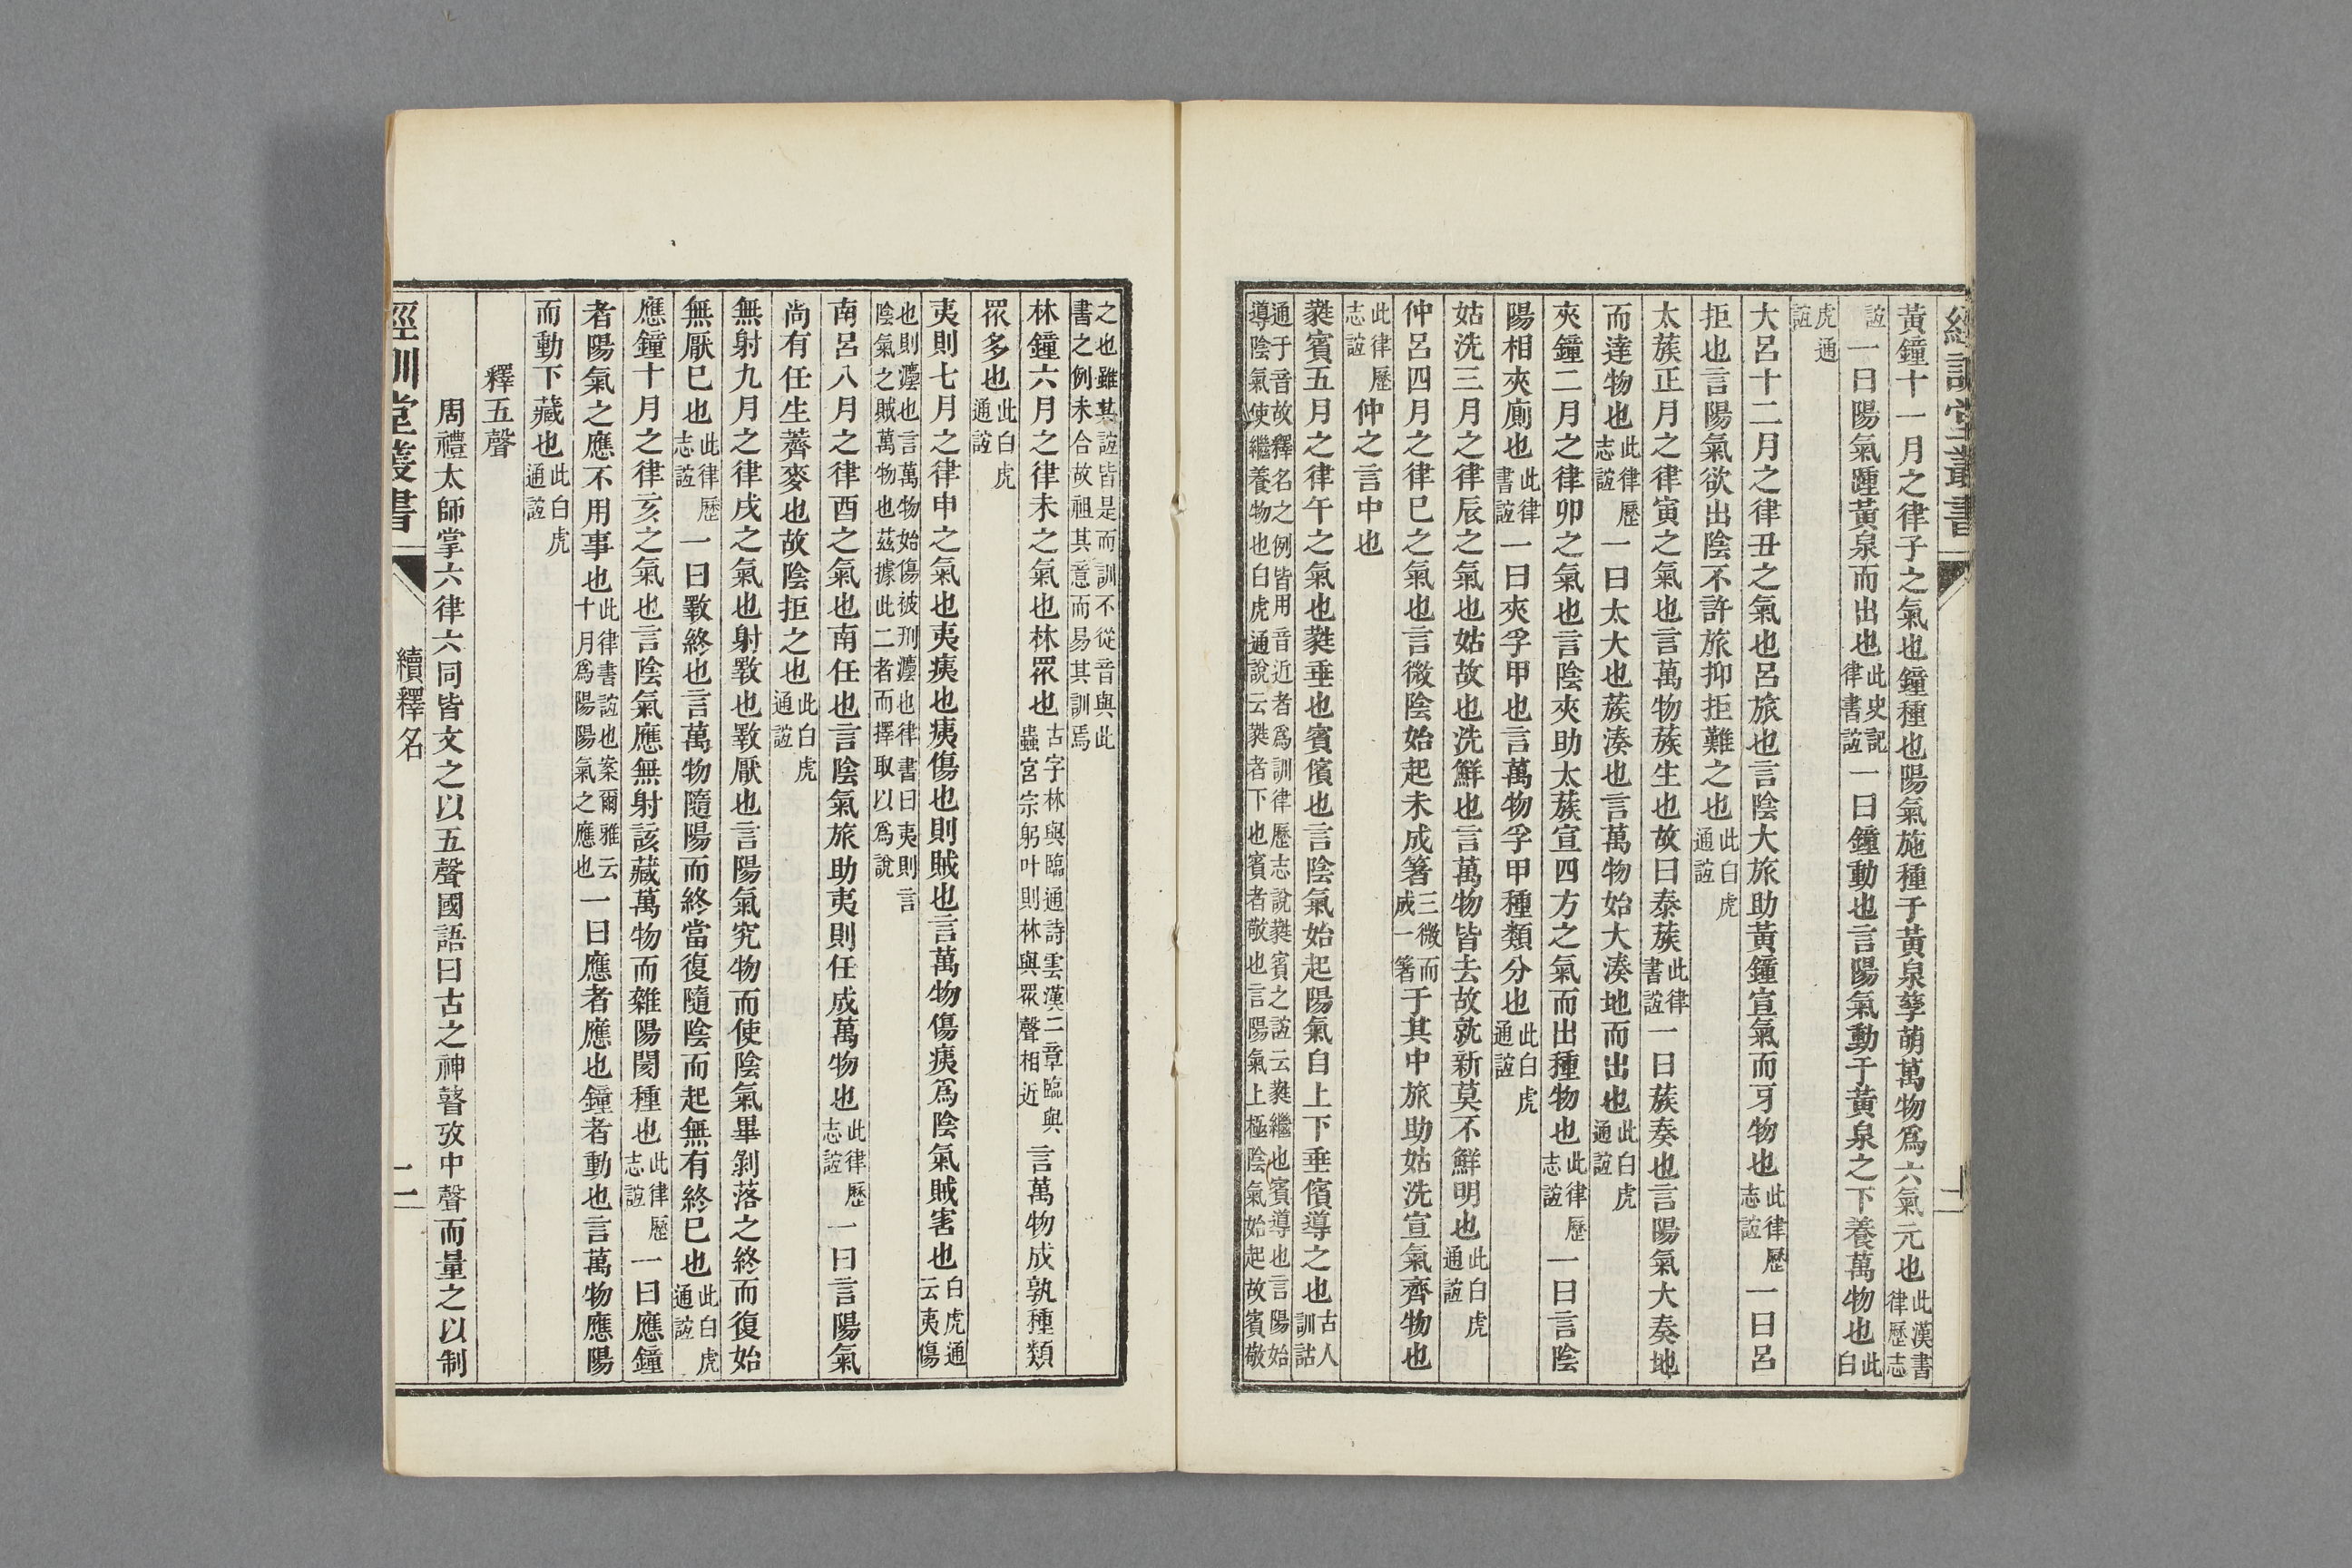 經訓堂叢書 二
黃鐘十一月之律子之氣也鐘種也陽氣施種于黃泉孳萌萬物爲六氣元也此漢書律歷志
誼一曰陽氣踵黃泉而出也此史記律書誼一曰鐘動也言陽氣動于黃泉之下養萬物也此白
虎通誼
大呂十二月之律丑之氣也呂旅也言陰大旅助黃鐘宣氣而牙物也此律歷志誼一曰呂
拒也言陽氣欲出陰不許旅抑拒難之也此白虎通誼
太蔟正月之律寅之氣也言萬物蔟生也故曰泰蔟此律書誼一曰蔟奏也言陽氣大奏地
而達物也此律歷志誼一曰太大也蔟湊也言萬物始大湊地而出也此白虎通誼
夾鐘二月之律卯之氣也言陰夾助太蔟宣四方之氣而出種物也此律歷志誼一曰言陰
陽相夾廁也此律書誼一曰夾孚甲也言萬物孚甲種類分也此白虎通誼
姑洗三月之律辰之氣也姑故也洗鮮也言萬物皆去故就新莫不鮮明也此白虎通誼
仲呂四月之律巳之氣也言微陰始起未成箸三微而成一箸于其中旅助姑洗宣氣齊物也
此律歷志誼仲之言中也
蕤賓五月之律午之氣也蕤垂也賓儐也言陰氣始起陽氣自上下垂儐導之也古人訓詁
通于音故釋名之例皆用音近者爲訓律歷志說蕤賓之誼云蕤繼也賓導也言陽始
導陰氣使繼養物也白虎通說云蕤者下也賓者敬也言陽氣上極陰氣始起故賓敬
之也雖其誼皆是而訓不從音與此
書之例未合故祖其意而易其訓焉
林鐘六月之律未之氣也林眾也古字林與臨通詩雲漢二章臨與蟲宮宗躬叶則林與眾聲相近言萬物成孰種類
眾多也此白虎通誼
夷則七月之律申之氣也夷痍也痍傷也則賊也言萬物傷痍爲陰氣賊害也白虎通云夷傷
也則灋也言萬物始傷被刑灋也律書曰夷則言
陰氣之賊萬物也茲據此二者而擇取以爲說
南呂八月之律酉之氣也南任也言陰氣旅助夷則任成萬物也此律歷志誼一曰言陽氣
尚有任生薺麥也故陰拒之也此白虎通誼
無射九月之律戌之氣也射斁也斁厭也言陽氣究物而使陰氣畢剝落之終而復始
無厭巳也此律歷志誼一曰斁終也言萬物隨陽而終當復隨陰而起無有終巳也此白虎通誼
應鐘十月之律亥之氣也言陰氣應無射該藏萬物而雜陽閡種也此律歷志誼一曰應鐘
者陽氣之應不用事也此律書誼也案爾雅云十月爲陽陽氣之應也一曰應者應也鐘者動也言萬物應陽
而動下藏也此白虎通誼
釋五聲
周禮太師掌六律六同皆文之以五聲國語曰古之神瞽攷中聲而量之以制
經訓堂叢書 續釋名 二